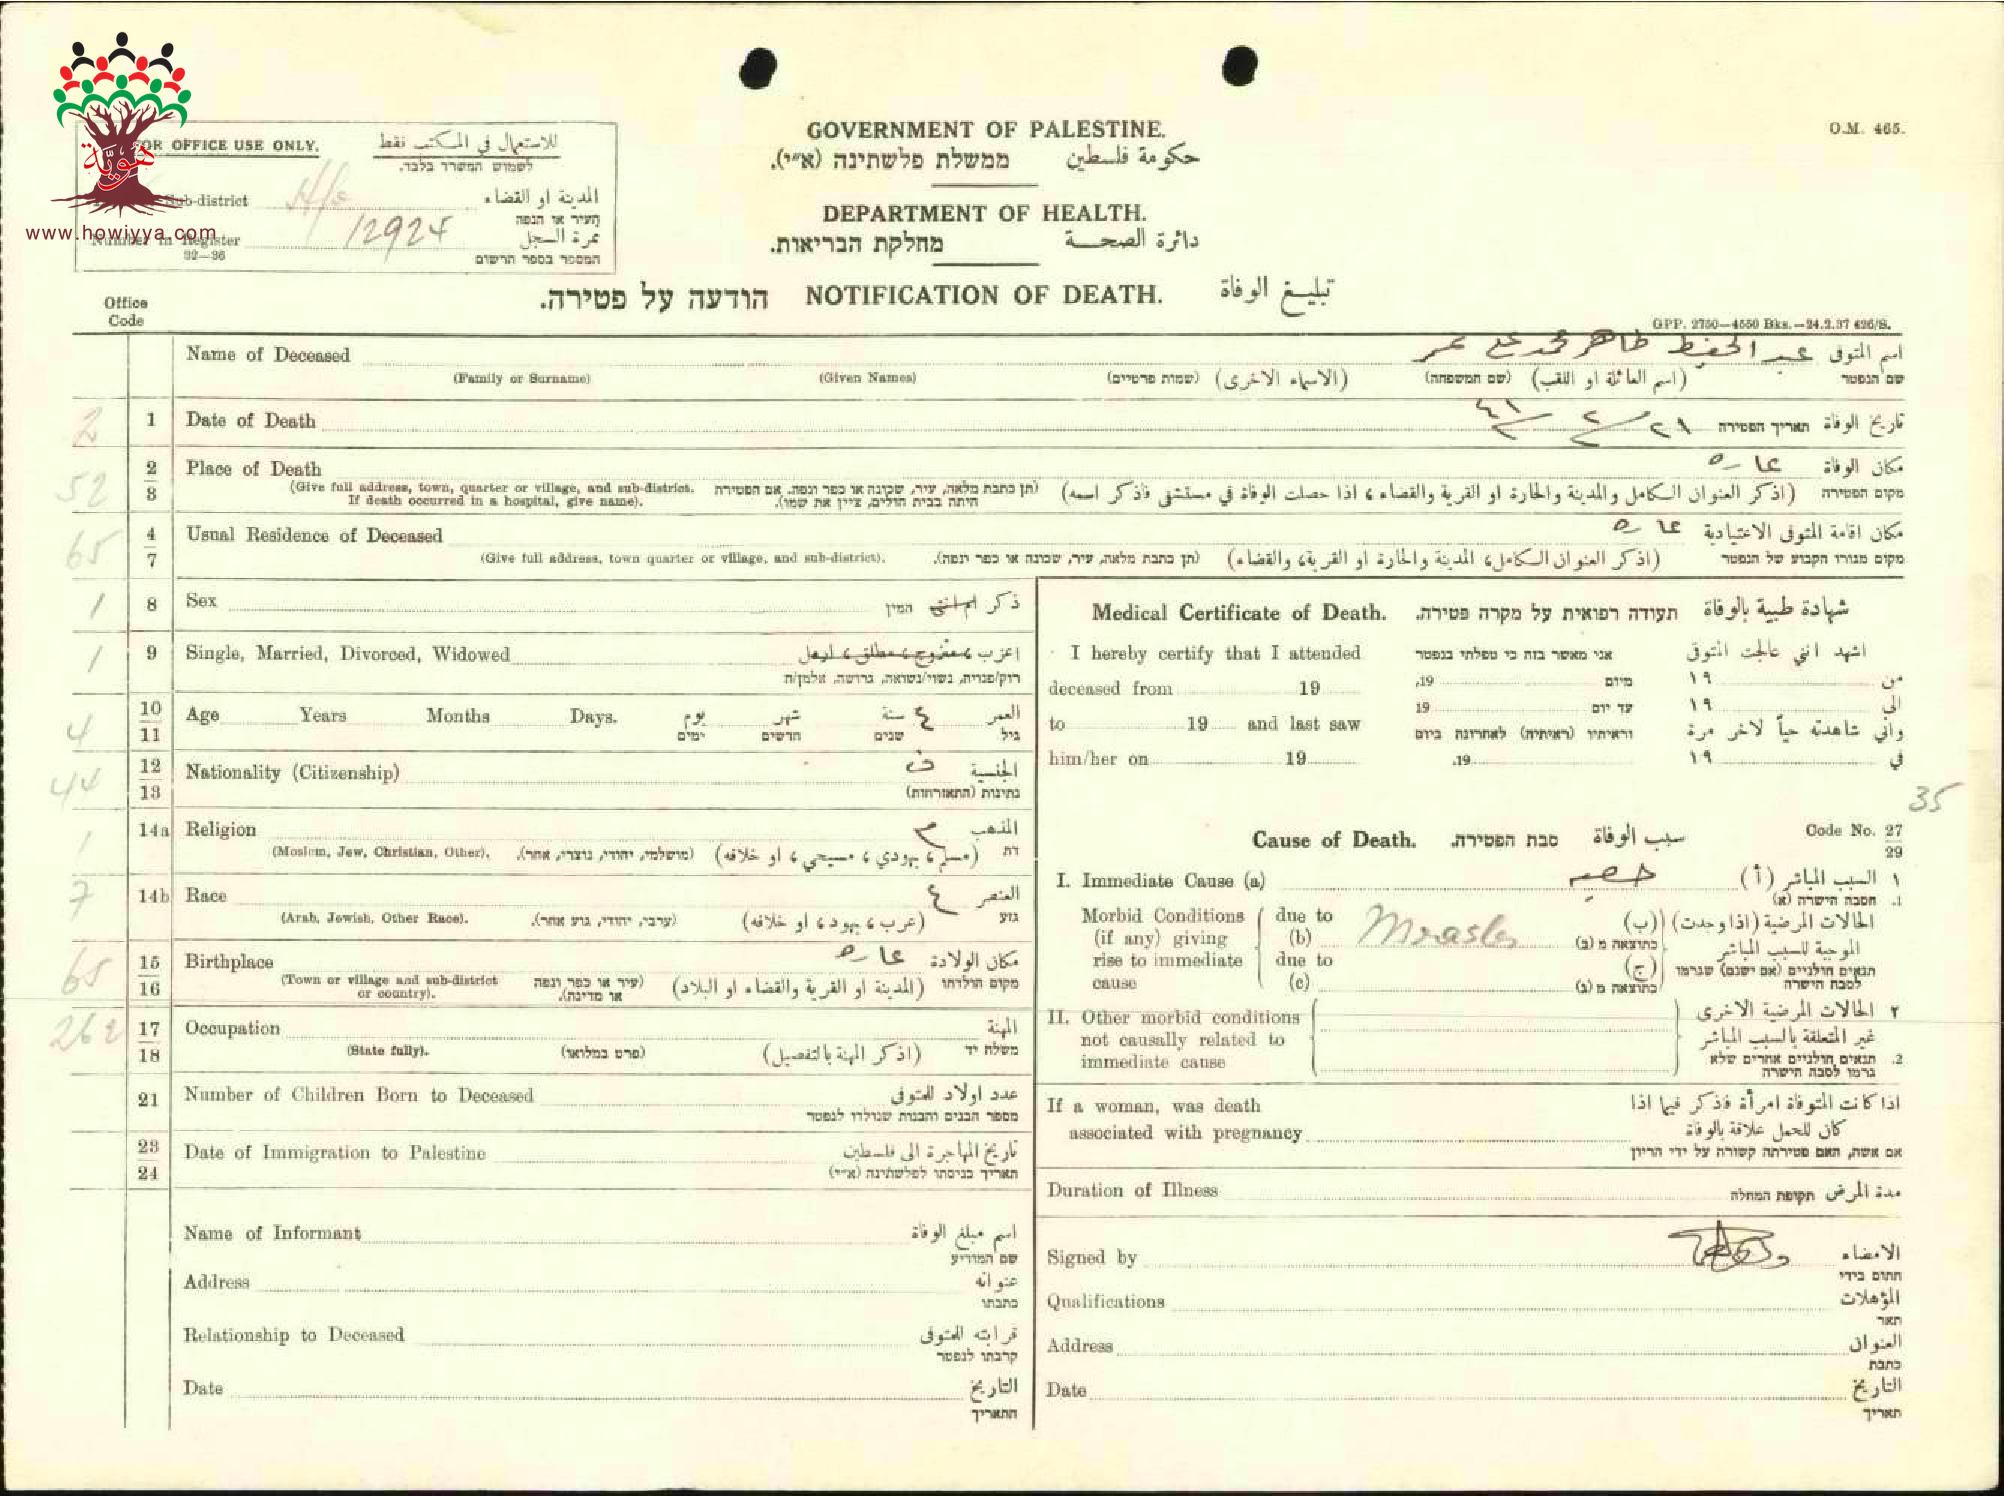 هوية
www.howiyya.com
FOR OFFICE USE ONLY. للاستعمال في المكتب فقط
לשמוש המשרד בלבד.
Sub-district المدينة او القضاء
העיר או הנפה
Number in Register 12924 نمرة السجل
32—36 המספר בספר הרשום
O.M. 465.
GOVERNMENT OF PALESTINE.
ממשלת פלשתינה (א״י). حكومة فلسطين
DEPARTMENT OF HEALTH.
מחלקת הבריאות. دائرة الصحة
הודעה על פטירה. NOTIFICATION OF DEATH. تبليغ الوفاة
Office
Code
GPP. 2750—4550 Bks.—24.2.37 426/S.
Name of Deceased عبد الحفيظ طاهر محمد علي عمر اسم المتوفى
(Family or Surname) (Given Names) (שמות פרטיים) (الاسماء الاخرى) (שם המשפחה) (اسم العائلة او اللقب) שם הנפטר
2 1 Date of Death ٢١/٢/٤١ תאריך הפטירה تاريخ الوفاة
52 2 Place of Death عاره مكان الوفاة
8 (Give full address, town, quarter or village, and sub-district. (תן כתבת מלאה, עיר, שכונה או כפר ונפה. אם הפטירה (اذكر العنوان الكامل والمدينة والحارة او القرية والقضاء، اذا حصلت الوفاة في مستشفى فاذكر اسمه) מקום הפטירה
If death occurred in a hospital, give name). היתה בבית חולים, ציין את שמו).
65 4 Usual Residence of Deceased عاره مكان اقامة المتوفى الاعتيادية
7 (Give full address, town quarter or village, and sub-district). (תן כתבת מלאה, עיר, שכונה או כפר ונפה). (اذكر العنوان الكامل، المدينة والحارة او القرية، والقضاء) מקום מגורו הקבוע של הנפטר
1 8 Sex המין ذكر ام انثى
1 9 Single, Married, Divorced, Widowed اعزب، متزوج، مطلق، ارمل
רוק/פנויה, נשוי/נשואה, גרושה, אלמן/ה
4 10 Age Years Months Days. يوم شهر سنة ٤ العمر
11 ימים חדשים שנים גיל
44 12 Nationality (Citizenship) ف الجنسية
13 נתינות (התאזרחות)
1 14a Religion م المذهب
(Moslem, Jew, Christian, Other). (מושלמי, יהודי, נוצרי, אחר). (مسلم، يهودي، مسيحي، او خلافه) דת
7 14b Race ع العنصر
(Arab, Jewish, Other Race). (ערבי, יהודי, גזע אחר). (عرب، يهود، او خلافه) גזע
65 15 Birthplace عاره مكان الولادة
16 (Town or village and sub-district (עיר או כפר ונפה (المدينة او القرية والقضاء او البلاد) מקום הולדתו
or country). או מדינה).
262 17 Occupation المهنة
18 (State fully). (פרט במלואו) (اذكر المهنة بالتفصيل) משלח יד
21 Number of Children Born to Deceased عدد اولاد المتوفى
מספר הבנים והבנות שנולדו לנפטר
23 Date of Immigration to Palestine تاريخ المهاجرة الى فلسطين
24 תאריך כניסתו לפלשתינה (א״י)
Name of Informant اسم مبلغ الوفاة
שם המודיע
Address عنوانه
כתבתו
Relationship to Deceased قرابته للمتوفى
קרבתו לנפטר
Date التاريخ
התאריך
Medical Certificate of Death. תעודה רפואית על מקרה פטירה. شهادة طبية بالوفاة
I hereby certify that I attended אני מאשר בזה כי טפלתי בנפטר اشهد انني عالجت المتوفى
deceased from 19 19, מיום ١٩ من
to 19 and last saw 19 עד יום ١٩ الى
וראיתיו (ראיתיה) לאחרונה ביום واني شاهدته حياً لآخر مرة
him/her on 19 19. ١٩ في
35
Cause of Death. סבת הפטירה. سبب الوفاة Code No. 27
29
I. Immediate Cause (a) حصبه ١ السبب المباشر (أ)
1. הסבה הישרה (א)
Morbid Conditions due to الحالات المرضية (اذا وجدت) (ب)
(if any) giving (b) Measles כתוצאה מ (ב) الموجبة للسبب المباشر
rise to immediate due to (ج) תנאים חולניים (אם ישנם) שגרמו
cause (c) כתוצאה מ (ג) לסבה הישרה
II. Other morbid conditions ٢ الحالات المرضية الاخرى
not causally related to غير المتعلقة بالسبب المباشر
immediate cause 2. תנאים חולניים אחרים שלא
גרמו לסבה הישרה
If a woman, was death اذا كانت المتوفاة امرأة فاذكر فيما اذا
associated with pregnancy كان للحمل علاقة بالوفاة
אם אשה, האם פטירתה קשורה על ידי הריון
Duration of Illness תקופת המחלה مدة المرض
Signed by الامضاء
חתום בידי
Qualifications المؤهلات
תאר
Address العنوان
כתבת
Date التاريخ
תאריך